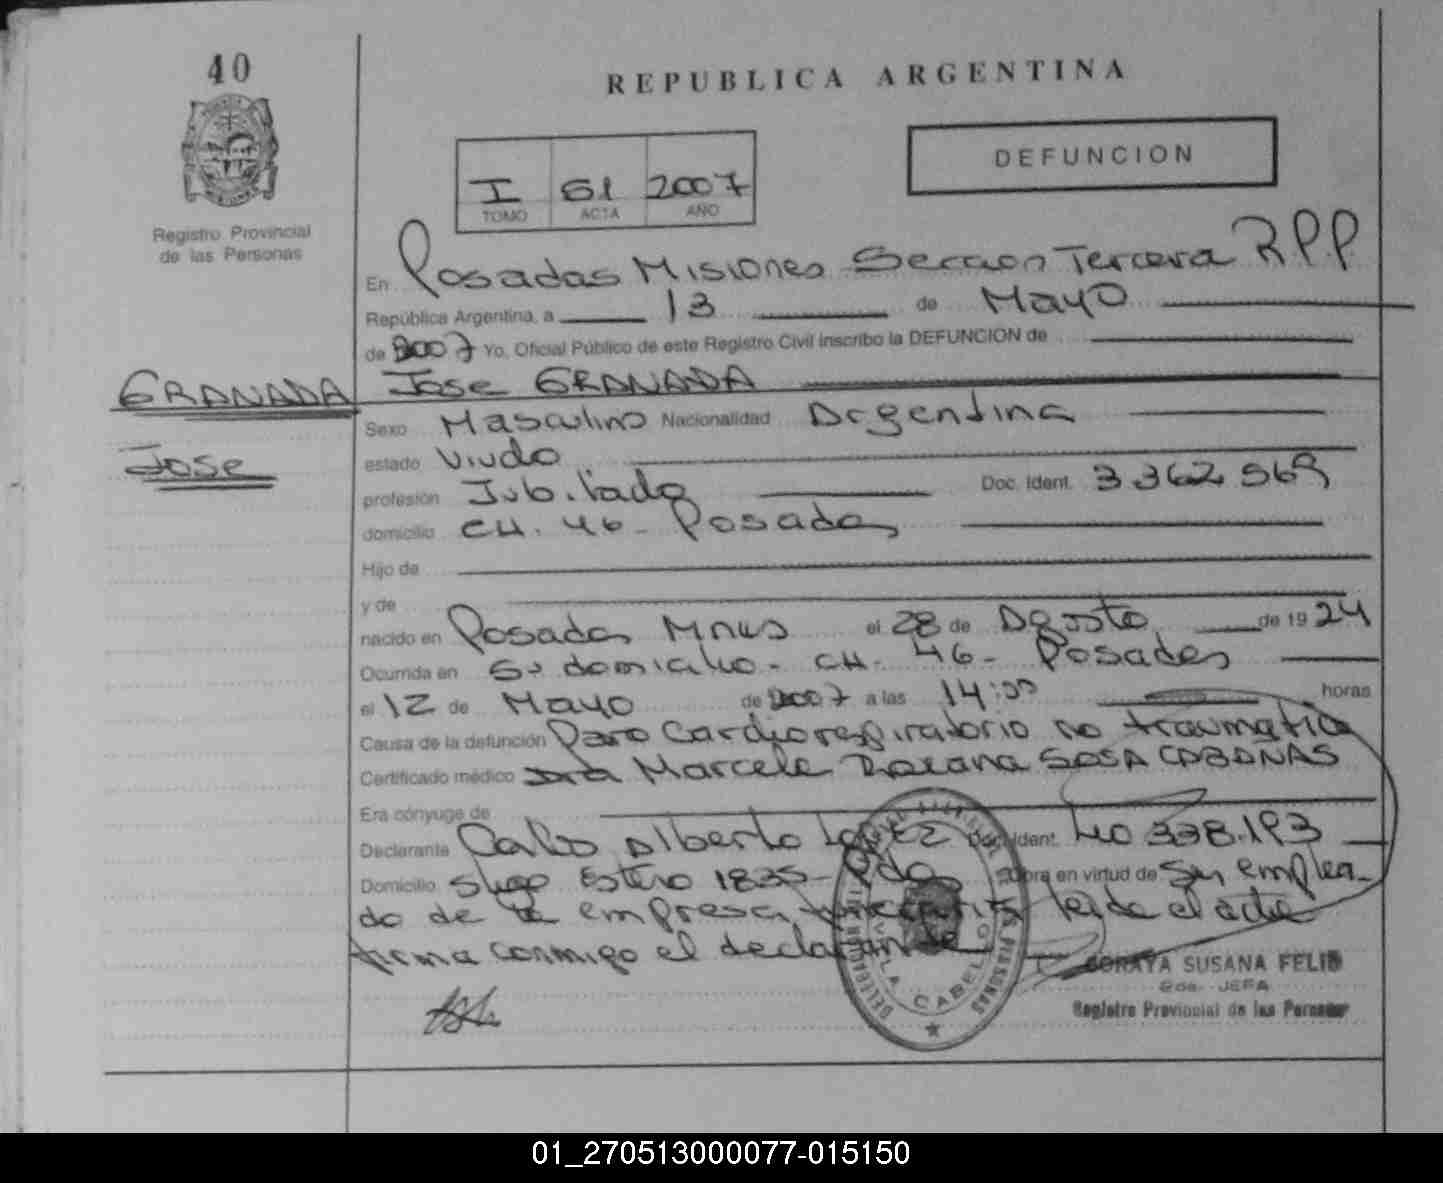 40
REPUBLICA ARGENTINA
DEFUNCION
I 61 2007
TOMO ACTA AÑO
Registro Provincial
de las Personas
En Posadas Misiones Seccion Tercera R.P.P
República Argentina, a 13 de Mayo
de 2007 Yo, Oficial Público de este Registro Civil inscribo la DEFUNCION de
GRANADA Jose GRANADA
Sexo Masculino Nacionalidad Argentina
Jose
estado Viudo
profesión Jubilado Doc. Ident. 3362569
domicilio CH. 46 - Posadas
Hijo de
y de
nacido en Posadas Mnes el 28 de Agosto de 1924
Ocurrida en Su domicilio - CH. 46 - Posadas
el 12 de Mayo de 2007 a las 14:00 horas
Causa de la defunción Paro Cardiorespiratorio no traumatico
Certificado médico Dra Marcela Roxana SOSA CABAÑAS
Era cónyuge de
Declarante Carlos Alberto Lopez Doc. Ident. 40 338.193
Domicilio Stgo Estero 1835 - Pdas Obra en virtud de Ser emplea-
do de la empresa leida el acta
firma conmigo el declarante
DELEGACION VILLA CABELLO
PERSONAS
SORAYA SUSANA FELIB
2da. JEFA
Registro Provincial de las Personas
01_270513000077-015150